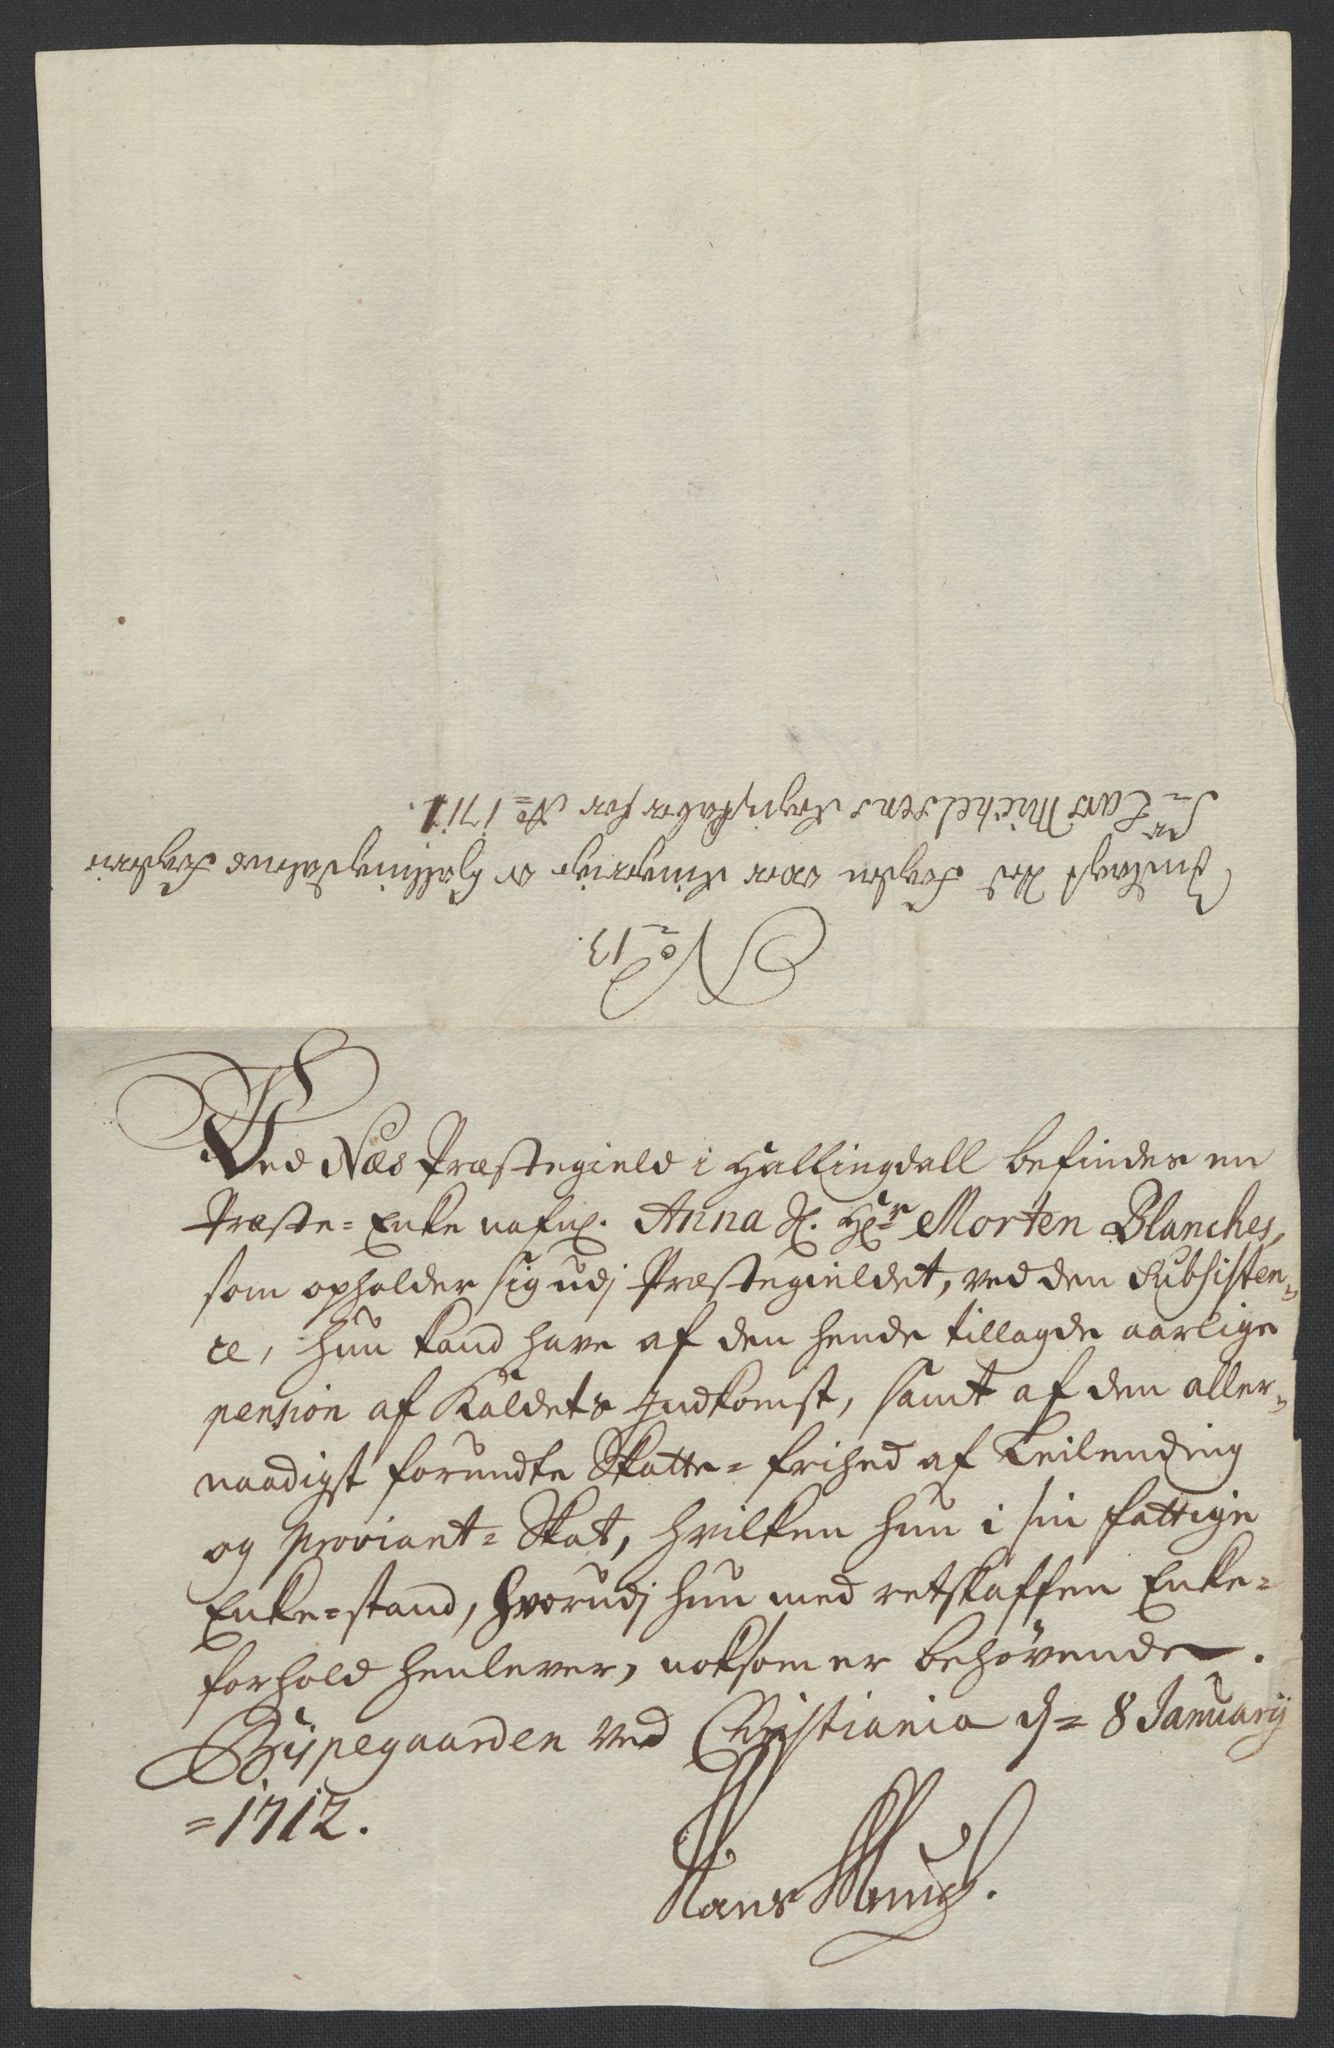 No 13.
Indlagt Ved Fogden over Ringerige og Hallingdalens Fogderie
Sr Lars Michelsens Regnskaber for Ao 1711.
Ved Næs Præstegield i Hallingdall befindes en
Præste-Enke nafnl. Anna Sl. Hr Morten Blanches,
som opholder sig udj Præstegieldet, ved den Subsisten-
ce, hun kand have af den hende tillagde aarlige
pension af Kaldets Indkomst, samt af den aller-
naadigst forundte Skatte-frihed af Leilending
og Proviant-Skat, hvilken hun i sin fattige
Enke-stand, hvorudj hun med retskaffen Enke-
forhold henlever, noksom er behövende.
Bispegaarden ved Christiania d= 8 January
=1712.
Hans Munch.